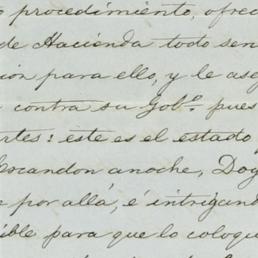 procedimiento, ofrec
de Hacienda todo sen
ion para ello, y le as
contra su Gob.º pues
rtes: este es el estado
Escandon anoche, Doy
por allá, é intrigand
ible para que lo coloqu